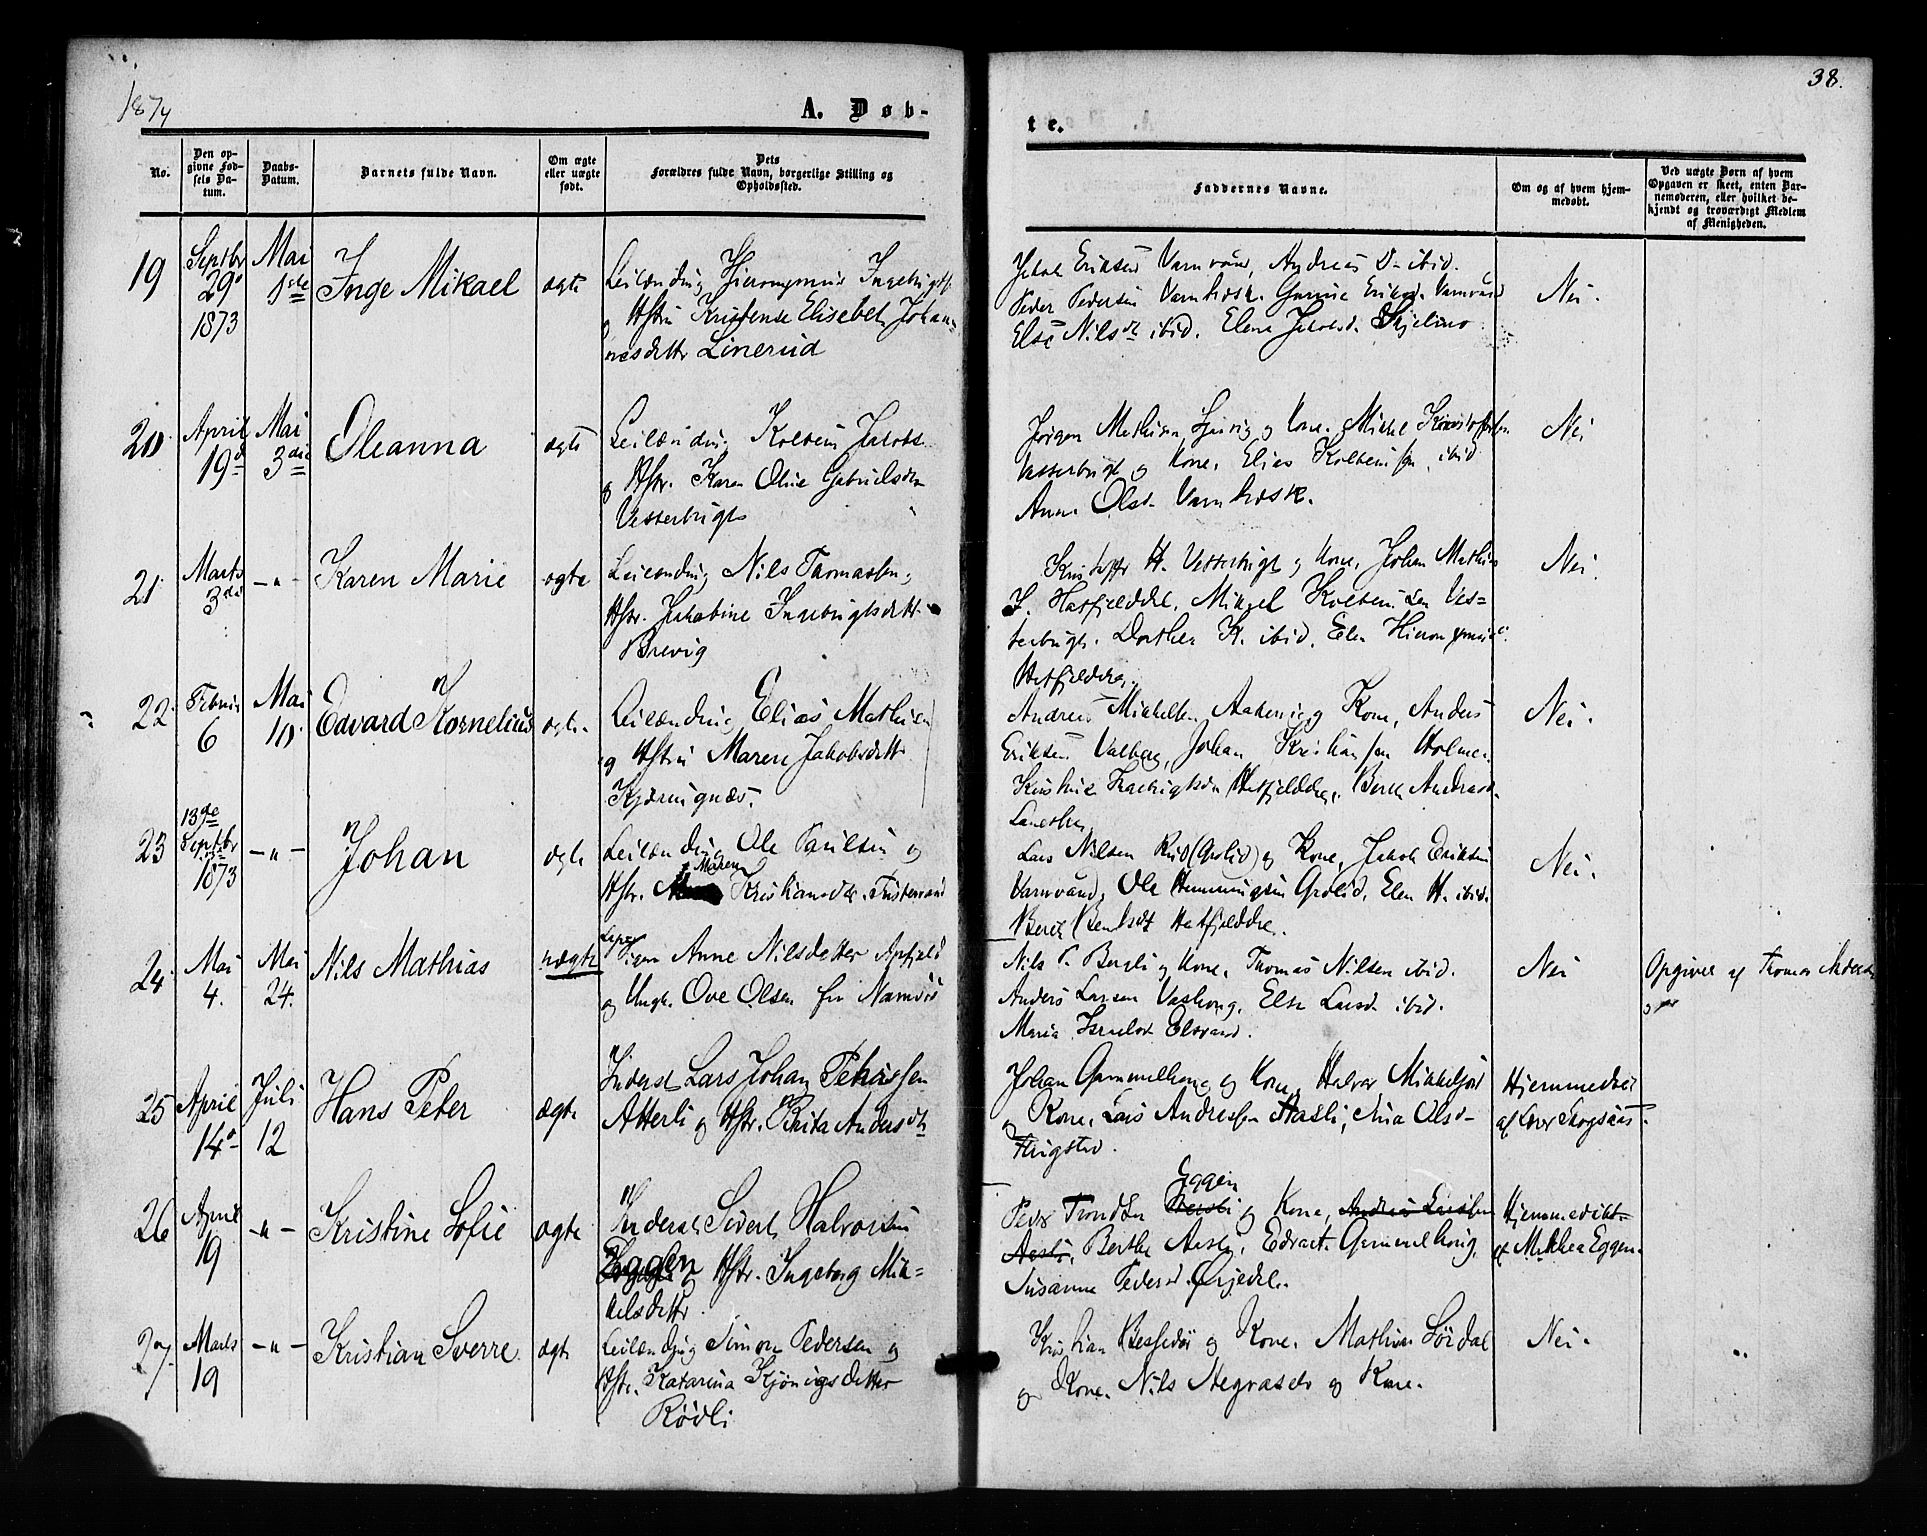 1874
A. Døb-
te.
38.
No.
Den op-
givne Fød-
sels Da-
tum.
Daabs-
Datum.
Barnets fulde Navn.
Om ægte
eller uægte
født.
Dets
Forældres fulde Navn, borgerlige Stilling og
Opholdssted.
Faddernes Navne.
Om og af hvem hjem-
medøbt.
Ved uægte Børn af hvem
Opgaven er skeet, enten Bar-
nemoderen, eller hvilket be-
kjendt og troværdigt Medlem
af Menigheden.
19
Septbr
29
1873
Mai
1ste
Inge Mikael
ægte
Leilænding Hieronymus Ingebrigts.
og Hstru Kristense Elisabeth Johan-
nesdetter Linerud
Jakob Eriksen Varnvand, Andreas ibid.
Peder Pedersen Varnhøsk. Gurine Eriksd. Varnvand
Else Nilsdt ibid. Elene Jakobsd.
Nei.
20
April
19d
Mai
3die
Oleanna
ægte
Leilænding Kolbein Jakobs.
og Hstr. Karen Oline Gabrielsdtr
Vesterbugt
Jørgen Mathisen og Kone. Mikkel Kristoffersen
Vesterbugt og Kone. Elias Kolbeinsen, ibid
Anne Olsd. Varnhøsk.
Nei
21.
Marts
3die
– " –
Karen Marie
ægte
Leilænding Nils Thomassen og
Hstr. Jakobine Ingebrigtsdett.
Brevig
Kristoffer H. Vesterbugt og Kone, Johan Mathis
I. Hatfjelddal, Mikael Kolbeinsen Ves-
terbugt. Dorthea K. ibid. Elen Hieronymusd.
Hatfjelddal.
Nei.
22.
Februar
6
Mai
10.
Edvard Kornelius
ægte
Leilænding Elias Mathisen
og Hstru Maren Jakobsdett.
Kjærringnæs.
Andreas Mikkelsen og Kone, Anders
Eriksen Valberg, Johan Kristiansen Holmen.
Hatfjelddal, Berit Andreasd.
Nei.
23
13de
Septbr
1873
– " –
Johan
ægte
Leilænding Ole Paulsen og
Maren
Hstr. Kristiansdtr.
Lars Nilsen Rud (Grolid) og Kone, Jakob Eriksen
Varnvand, Ole Hemmingsen Grolid, Elen H. ibid.
Berit Bentsdt Hatfjelddal.
Nei.
24.
Mai
4.
Mai
24.
Nils Mathias
uægte
Pigen Anne Nilsdetter
og Ungk. Ove Olsen fra Namsos
Nils P. Bergli og Kone. Thomas Nilsen ibid.
Anders Larsen Else Larsd. ibid.
Maria Israelsd. Elsvand.
Nei
Opgivet af Thomas
25
April
14
Juli
12
Hans Peter
ægte
Inderst Lars Johan
Atterli og Hstr. Brita Andersdt.
Johan Gammelhong og Kone, Halvar Mikkeljord
og Kone, Lars Andreassen Aasli, Ana Olsd
Hjemmedøbt
af
26
April
19
– " –
Kristine Sofie
ægte
Inderst Sivert Halvorsen
Eggen og Hstr. Ingeborg Mik-
kelsdetter.
Eggen
Peder Trondsen og Kone, Andreas Larsen
Aasli, Berthe Aasli, Edvart Gammelhong,
Susanne Pedersd.
Hjemmedøbt
af Mikkea Eggen.
27.
Marts
19
– " –
Kristian Sverre.
ægte
Leilænding Simon Pedersen og
Hstr. Katarina
Rødli.
Kristian Bessedør og Kone. Mathias Sørdal
og Kone. Nils og Kone.
Nei.